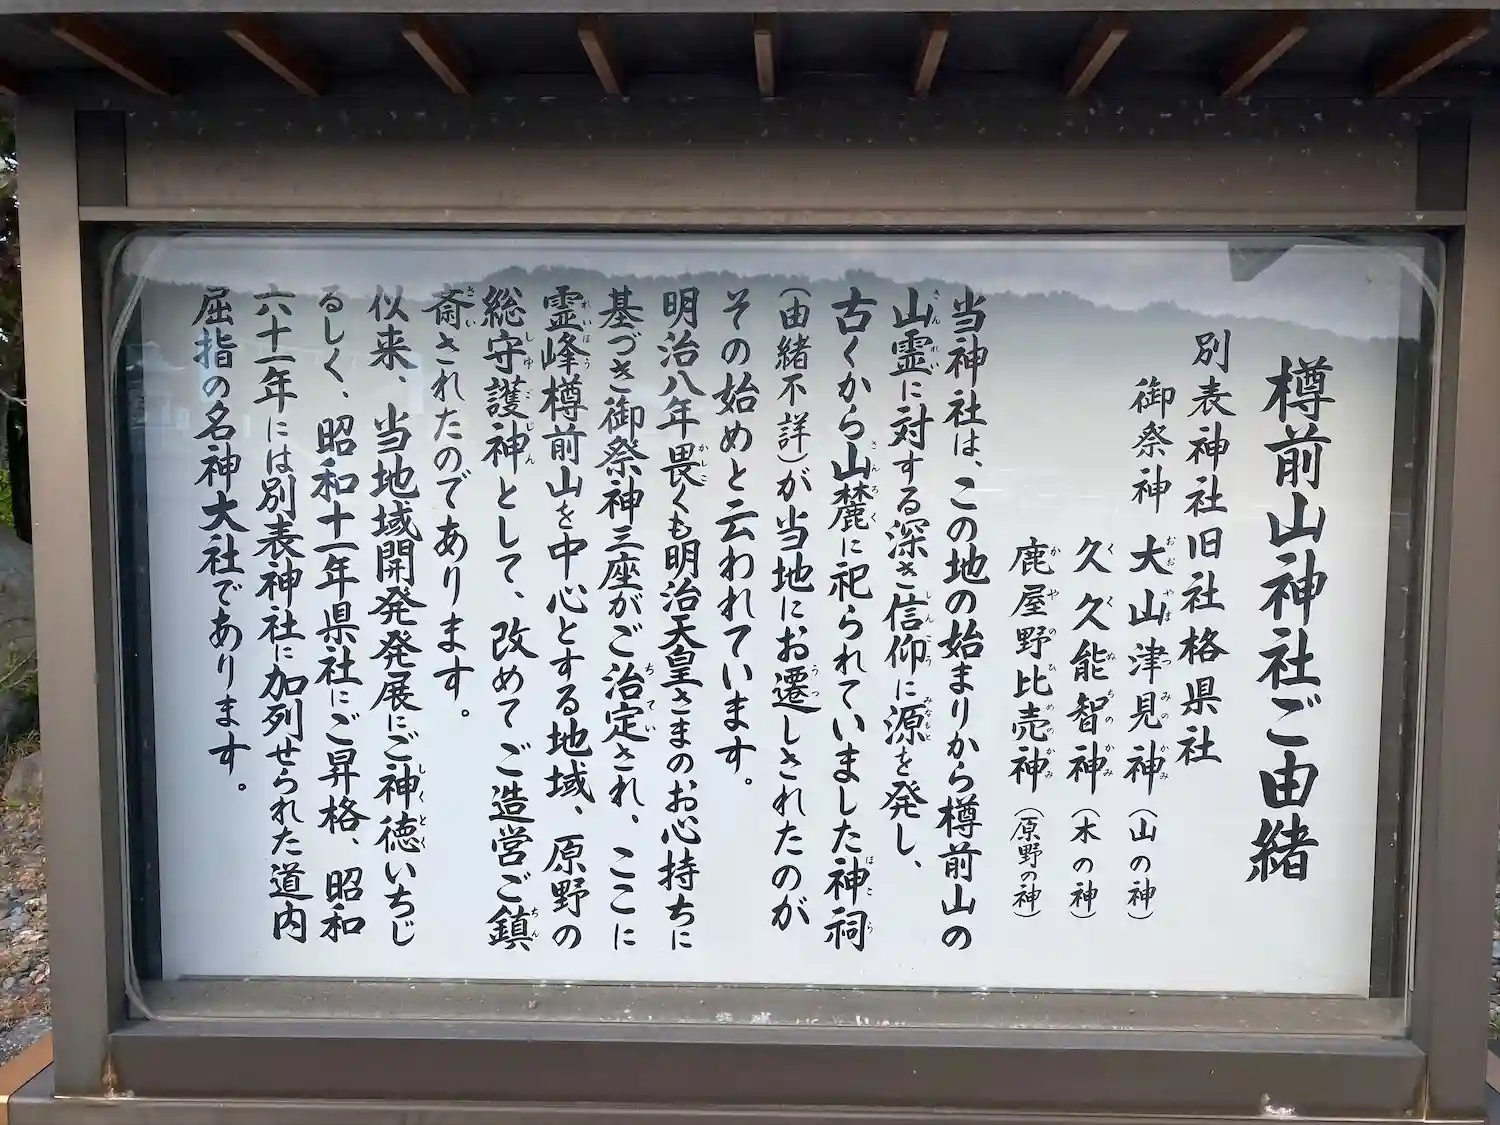 樽前山神社ご由緒
別表神社旧社格県社
御祭神 大山津見神（山の神）
久久能智神（木の神）
鹿屋野比売神（原野の神）
当神社は、この地の始まりから樽前山の
山霊に対する深き信仰に源を発し、
古くから山麓に祀られていました神祠
（由緒不詳）が当地にお遷しされたのが
その始めと云われています。
明治八年畏くも明治天皇さまのお心持ちに
基づき御祭神三座がご治定され、ここに
霊峰樽前山を中心とする地域、原野の
総守護神として、改めてご造営ご鎮
斎されたのであります。
似来、当地域開発発展にご神徳いちじ
るしく、昭和十一年県社にご昇格、昭和
六十一年には別表神社に加列せられた道内
屈指の名神大社であります。